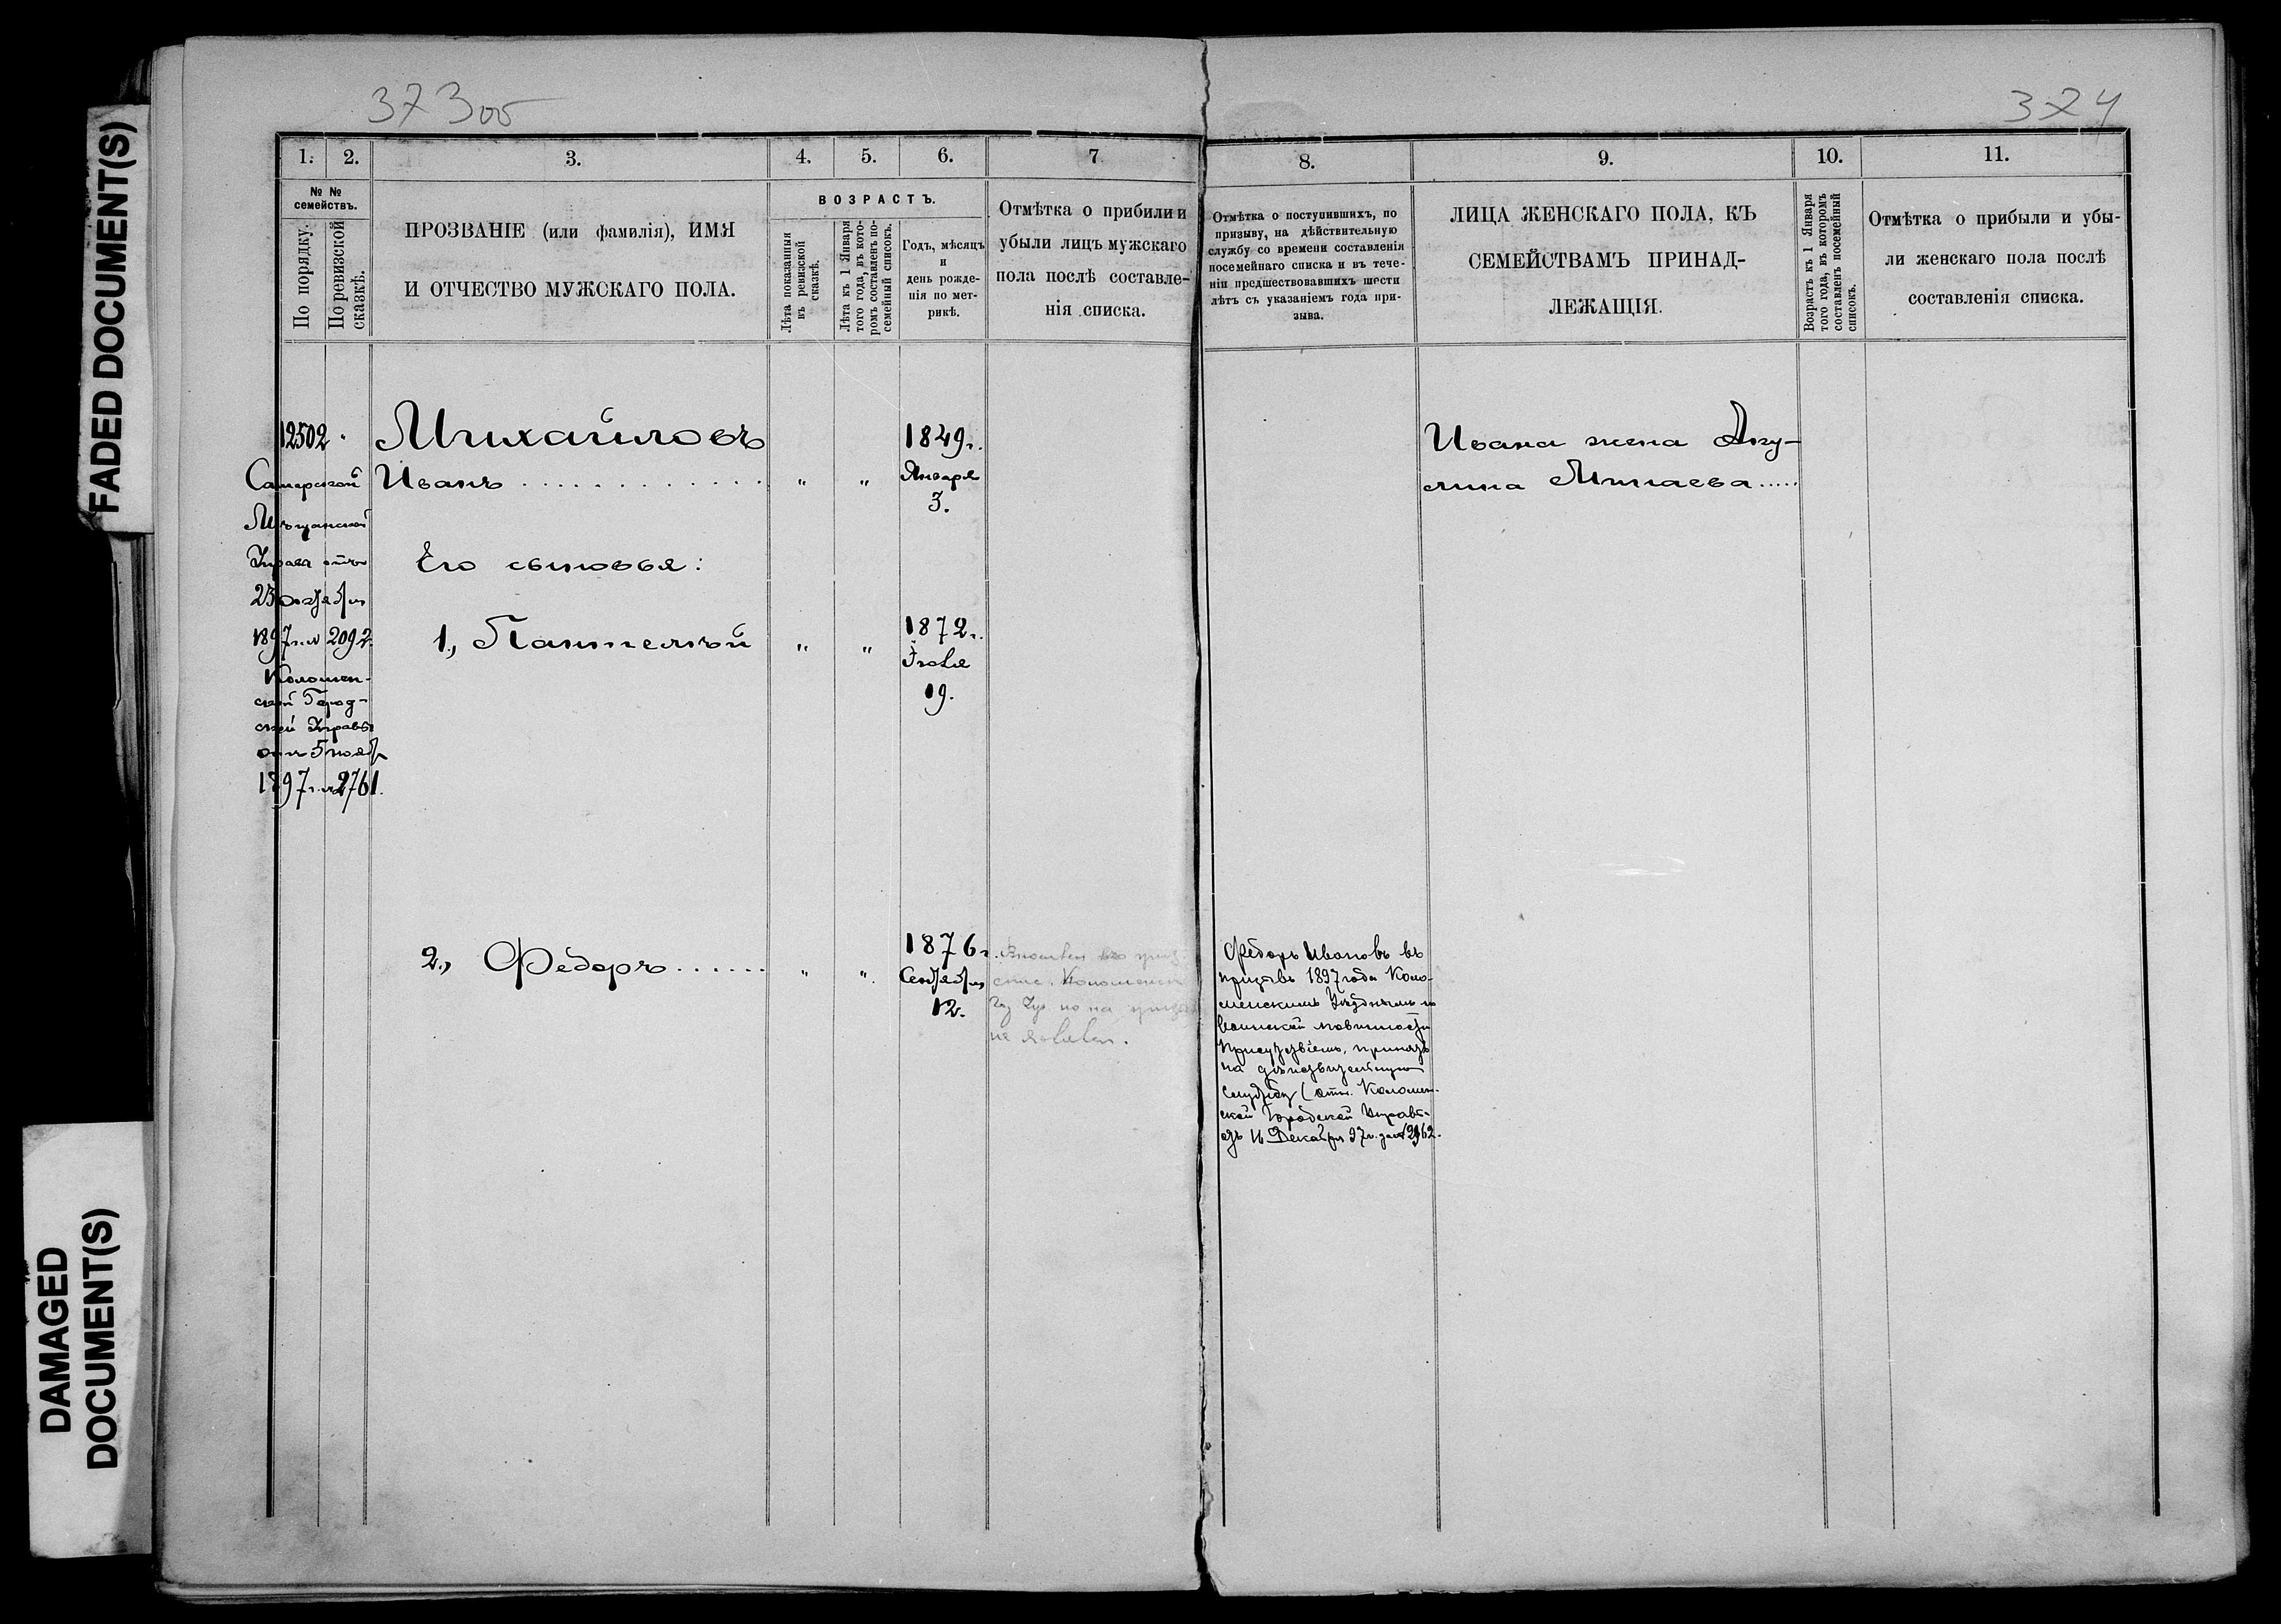 FADED DOCUMENT(S)
DAMAGED
DOCUMENT(S)
373об
374
1.
2.
3.
4.
5.
6.
7
8.
9.
10.
11.
№ №
семействъ.
По порядку.
По ревизской
сказкѣ.
ПРОЗВАНІЕ (или фамилія), ИМЯ
И ОТЧЕСТВО МУЖСКАГО ПОЛА.
ВОЗРАСТЪ.
Лѣта показанныя
въ ревизской
сказкѣ.
Лѣта къ 1 Января
того года, въ кото-
ромъ составленъ по-
семейный списокъ.
Годъ, мѣсяцъ
и
день рожде-
нія по мет-
рикѣ.
Отмѣтка о прибыли и
убыли лицъ мужскаго
пола послѣ составле-
нія списка.
Отмѣтка о поступившихъ, по
призыву, на дѣйствительную
службу со времени составленія
посемейнаго списка и въ тече-
ніи предшествовавшихъ шести
лѣтъ съ указаніемъ года при-
зыва.
ЛИЦА ЖЕНСКАГО ПОЛА, КЪ
СЕМЕЙСТВАМЪ ПРИНАД-
ЛЕЖАЩІЯ.
Возрастъ къ 1 Января
того года, въ которомъ
составленъ посемейный
списокъ.
Отмѣтка о прибыли и убы-
ли женскаго пола послѣ
составленія списка.
12502 "
Самарской
Мѣщанской
Управ отъ
23 октября
1897 г. № 2092.
Коломен-
ской Город-
ской Управы
отъ 5 ноября
1897 г. № 2761.
Михайловъ
Иванъ . . . . . . . . . . . . .
" "
1849 г.
Января
3.
Его сыновья:
1., Пантелѣй
" "
1872 г.
Іюля
19.
2., Федоръ . . . . . .
" ".
1876 г.
Сентября
12.
Коломенск
но на
не явился.
Федоръ Ивановъ въ
призывъ 1897 года Коло-
менскимъ Уѣзднымъ по
воинской повинности
Присутствіемъ, принятъ
на дѣйствительную
службу (отн. Коломен-
ской Городской Управы
отъ 16 Декабря 97 г. за № 2962.
Ивана жена Аку-
лина Минаева .....